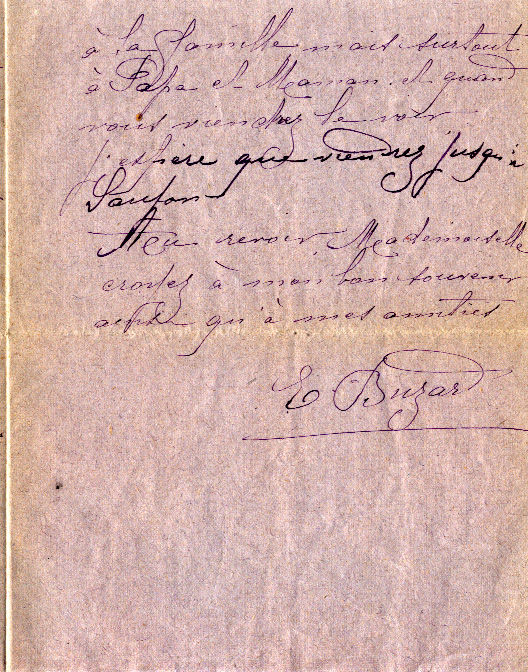 à la famille mais surtout
à Papa et Maman. et quand
vous viendrez le voir
j'espère que viendrez jusqu'à
Saujon
Au revoir Mademoiselle
croyez à mon bon souvenir
qu'à mes amitiés
E Buzard